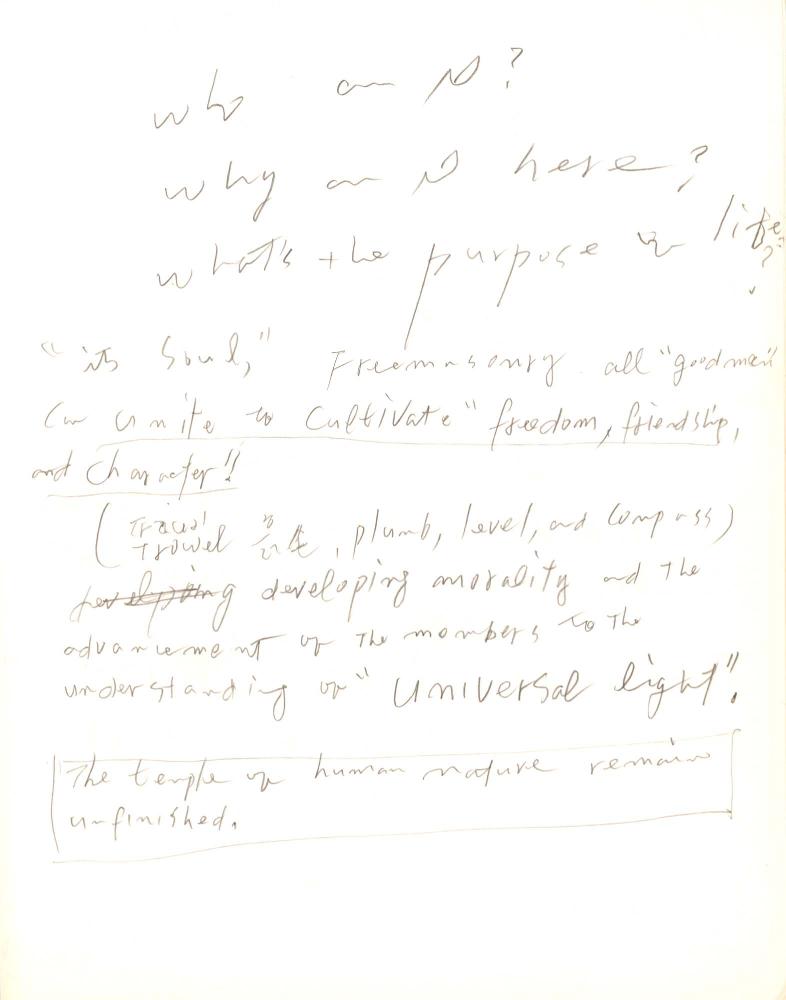 who am I?
why am I here?
what's the purpose of life?
"its soul," Freemasonry. all "good men"
can unite to cultivate "freedom, friendship,
and character"
(
trowel
, plumb, level, and compass)
developing morality and the
advancement of the members to the
understanding of "universal light".
The temple of human nature remain
unfinished.